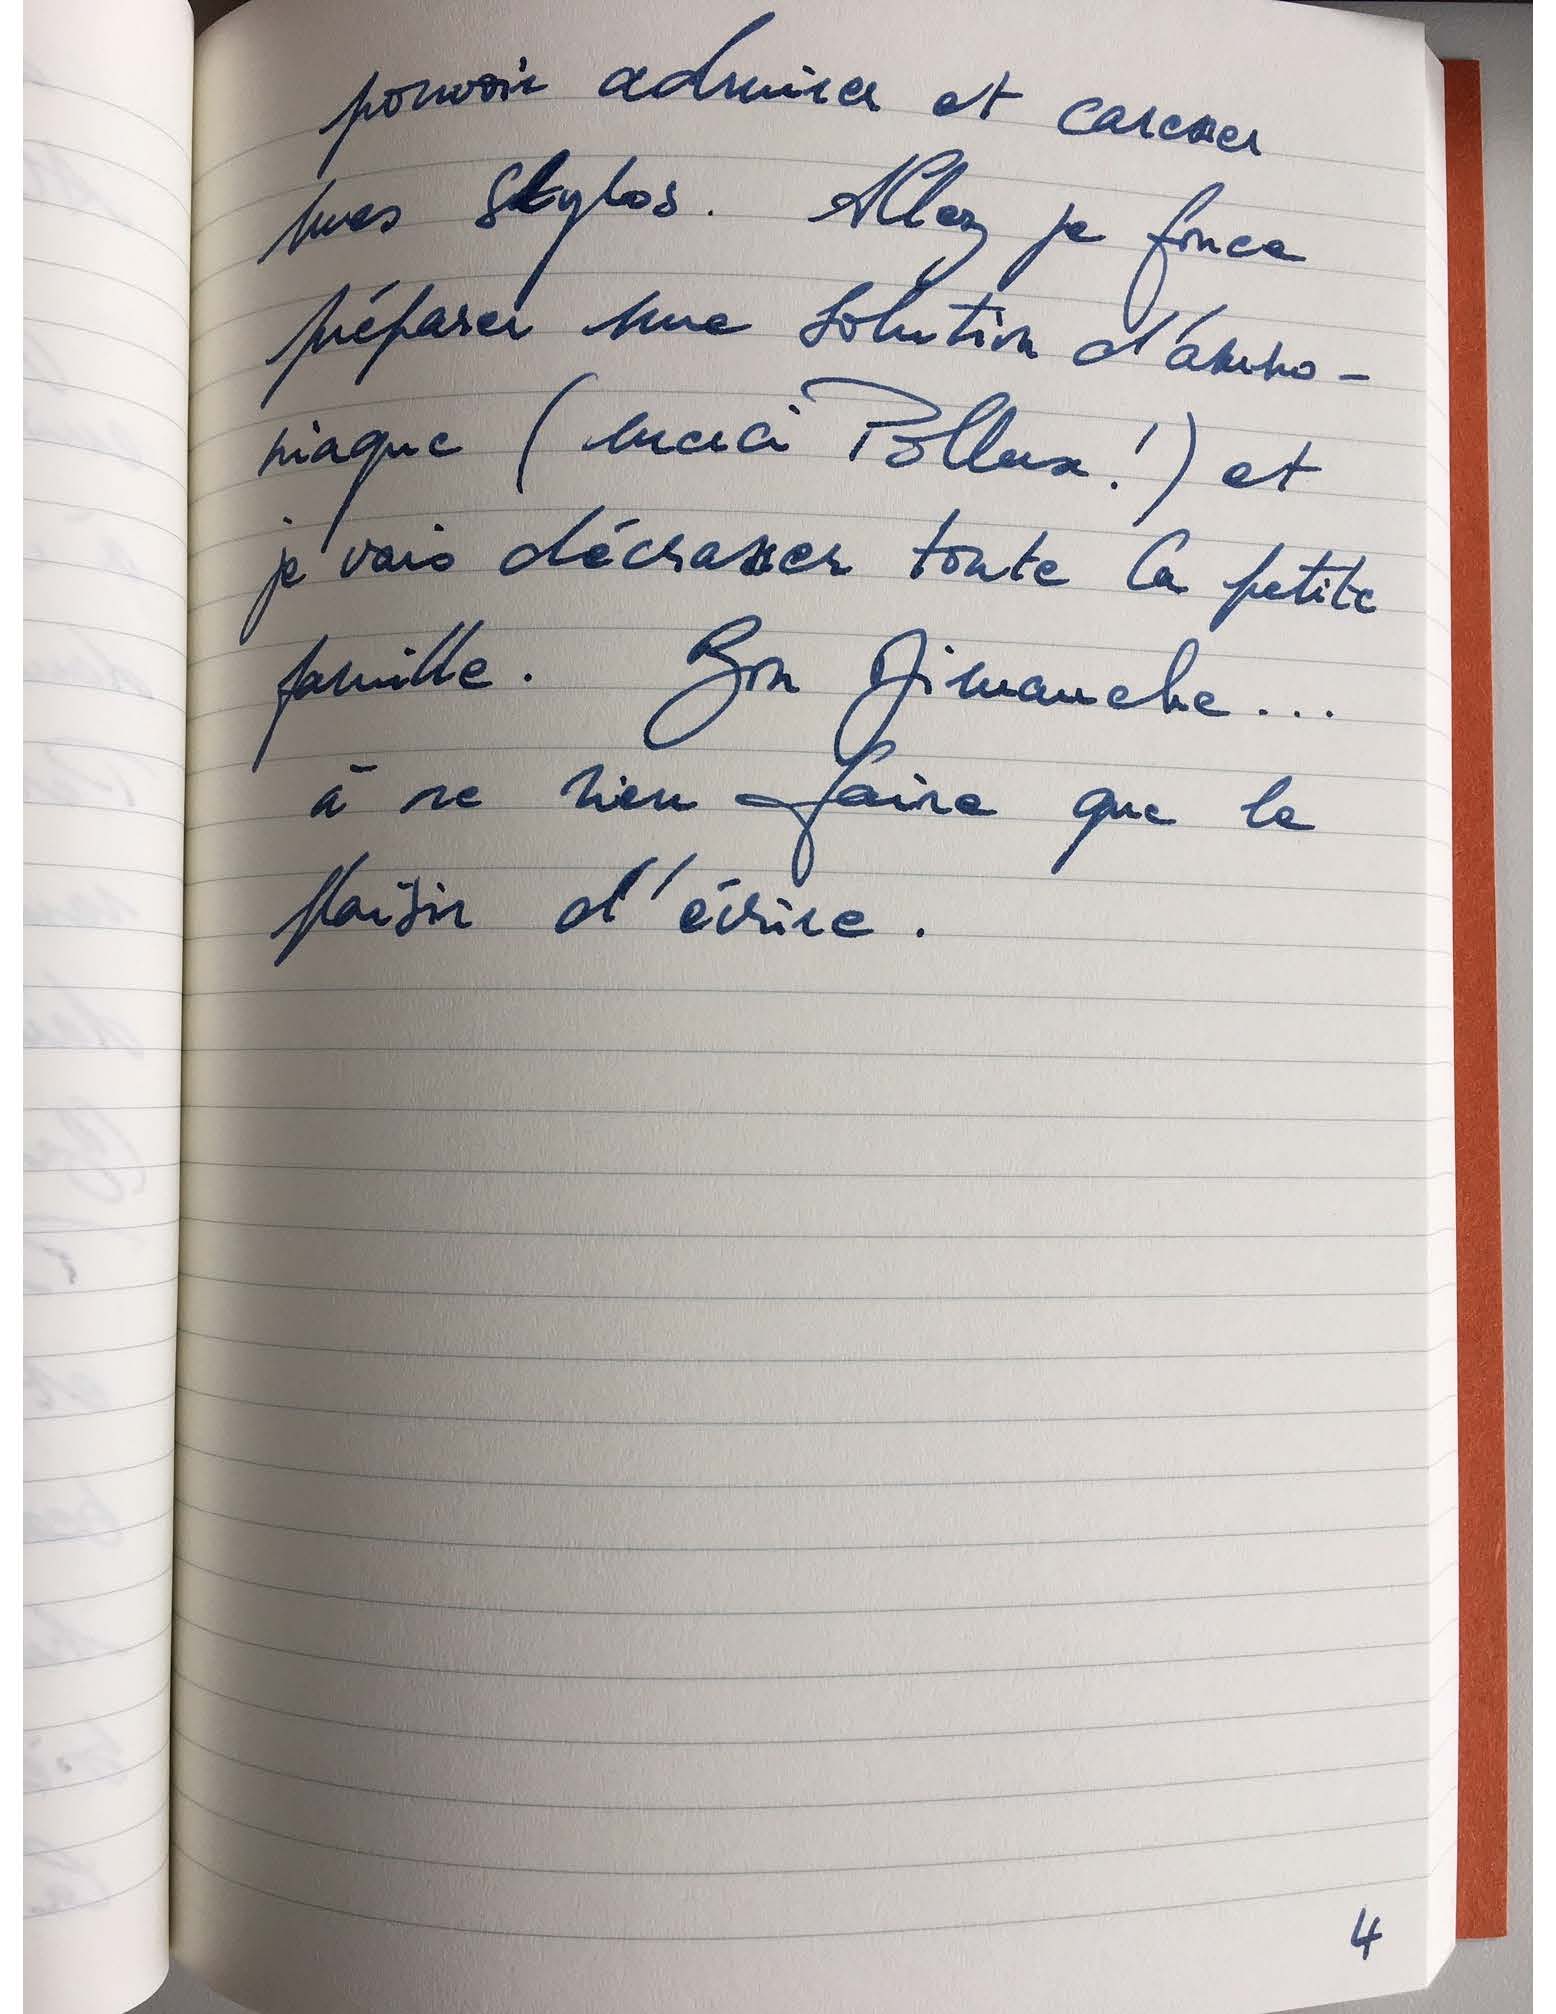 pouvoir admirer et caresser
mes stylos. Allez je fonce
préparer une solution d'ammo-
niaque (merci Pollux!) et
je vais décrasser toute la petite
famille. Bon Dimanche...
à ne rien faire que le
plaisir d'écrire.
4